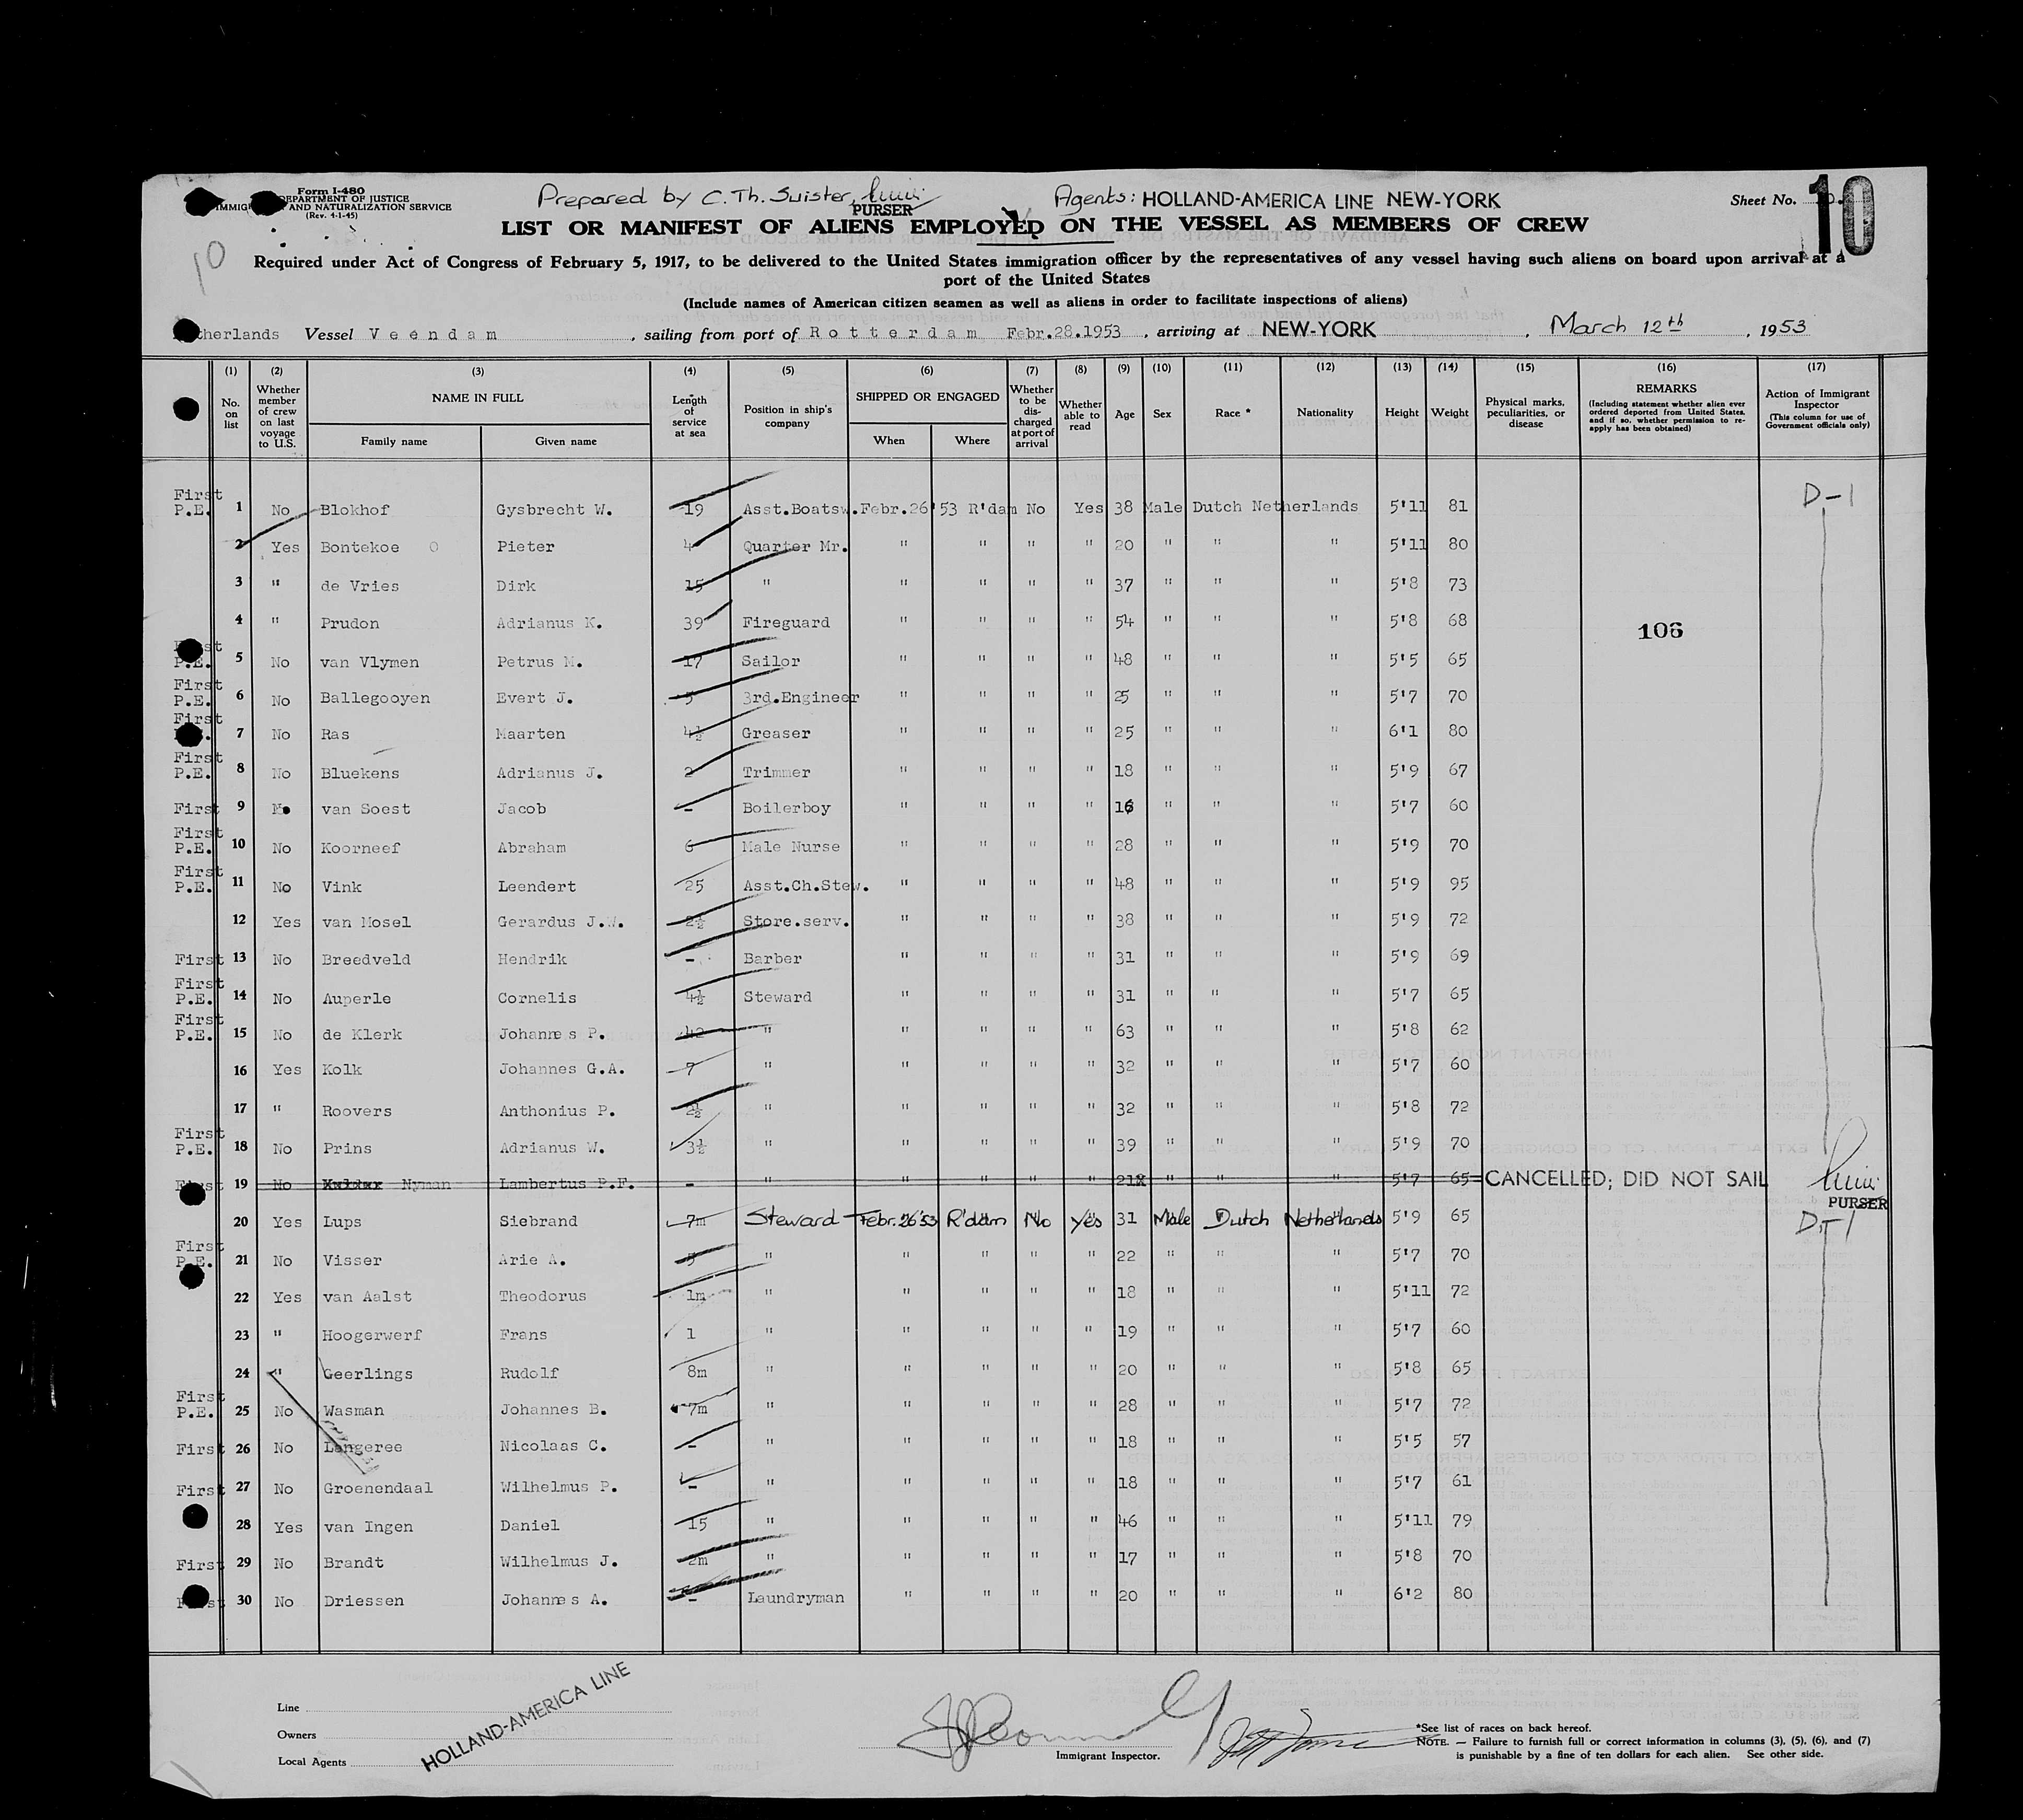 Form I-480
DEPARTMENT OF JUSTICE
IMMIG AND NATURALIZATION SERVICE
(Rev. 4-1-45)
Prepared by C. Th. Suister,
PURSER
Agents: HOLLAND-AMERICA LINE NEW-YORK
Sheet No. 10
10
LIST OR MANIFEST OF ALIENS EMPLOYED ON THE VESSEL AS MEMBERS OF CREW
Required under Act of Congress of February 5, 1917, to be delivered to the United States immigration officer by the representatives of any vessel having such aliens on board upon arrival at a
port of the United States
(Include names of American citizen seamen as well as aliens in order to facilitate inspections of aliens)
therlands Vessel Veendam, sailing from port of Rotterdam Febr.28.1953, arriving at NEW-YORK, March 12th, 1953
(1) (2) (3) (4) (5) (6) (7) (8) (9) (10) (11) (12) (13) (14) (15) (16) (17)
No. on list
Whether member of crew on last voyage to U.S.
NAME IN FULL
Family name
Given name
Length of service at sea
Position in ship's company
SHIPPED OR ENGAGED
When
Where
Whether to be discharged at port of arrival
Whether able to read
Age
Sex
Race *
Nationality
Height
Weight
Physical marks, peculiarities, or disease
REMARKS
(Including statement whether alien ever ordered deported from United States, and if so, whether permission to re-apply has been obtained)
Action of Immigrant Inspector
(This column for use of Government officials only)
First P.E. 1 No Blokhof Gysbrecht W. 19 Asst.Boatsw. Febr.26'53 R'dam No Yes 38 Male Dutch Netherlands 5'11 81 D-1
2 Yes Bontekoe O Pieter 4 Quarter Mr. " " " " 20 " " " 5'11 80
3 " de Vries Dirk 15 " " " " " 37 " " " 5'8 73
4 " Prudon Adrianus K. 39 Fireguard " " " " 54 " " " 5'8 68
106
P.E. 5 No van Vlymen Petrus M. 17 Sailor " " " " 48 " " " 5'5 65
First P.E. 6 No Ballegooyen Evert J. 5 3rd.Engineer " " " " 25 " " " 5'7 70
First 7 No Ras Maarten 4½ Greaser " " " " 25 " " " 6'1 80
First P.E. 8 No Bluekens Adrianus J. 2 Trimmer " " " " 18 " " " 5'9 67
First 9 No van Soest Jacob - Boilerboy " " " " 16 " " " 5'7 60
First P.E. 10 No Koorneef Abraham 6 Male Nurse " " " " 28 " " " 5'9 70
First P.E. 11 No Vink Leendert 25 Asst.Ch.Stew. " " " " 48 " " " 5'9 95
12 Yes van Mosel Gerardus J.W. 2½ Store.serv. " " " " 38 " " " 5'9 72
First 13 No Breedveld Hendrik - Barber " " " " 31 " " " 5'9 69
First P.E. 14 No Auperle Cornelis 4½ Steward " " " " 31 " " " 5'7 65
First P.E. 15 No de Klerk Johannes P. 42 " " " " " 63 " " " 5'8 62
16 Yes Kolk Johannes G.A. 7 " " " " " 32 " " " 5'7 60
17 " Roovers Anthonius P. 2½ " " " " " 32 " " " 5'8 72
First P.E. 18 No Prins Adrianus W. 3½ " " " " " 39 " " " 5'9 70
First 19 No Nyman Lambertus P.F. - " " " " " 21 " " " 5'7 65 CANCELLED; DID NOT SAIL
PURSER
20 Yes Lups Siebrand 7m Steward Febr. 26'53 R'dam No Yes 31 Male Dutch Netherlands 5'9 65 D-1
First P.E. 21 No Visser Arie A. 5 " " " " " 22 " " " 5'7 70
22 Yes van Aalst Theodorus 1m " " " " " 18 " " " 5'11 72
23 " Hoogerwerf Frans 1 " " " " " 19 " " " 5'7 60
24 " Geerlings Rudolf 8m " " " " " 20 " " " 5'8 65
First P.E. 25 No Wasman Johannes B. 7m " " " " " 28 " " " 5'7 72
First 26 No Lengeree Nicolaas C. - " " " " " 18 " " " 5'5 57
First 27 No Groenendaal Wilhelmus P. - " " " " " 18 " " " 5'7 61
28 Yes van Ingen Daniel 15 " " " " " 46 " " " 5'11 79
First 29 No Brandt Wilhelmus J. 2m " " " " " 17 " " " 5'8 70
30 No Driessen Johannes A. - Laundryman " " " " 20 " " " 6'2 80
Line
Owners
Local Agents
HOLLAND-AMERICA LINE
Immigrant Inspector.
*See list of races on back hereof.
NOTE. — Failure to furnish full or correct information in columns (3), (5), (6), and (7)
is punishable by a fine of ten dollars for each alien. See other side.